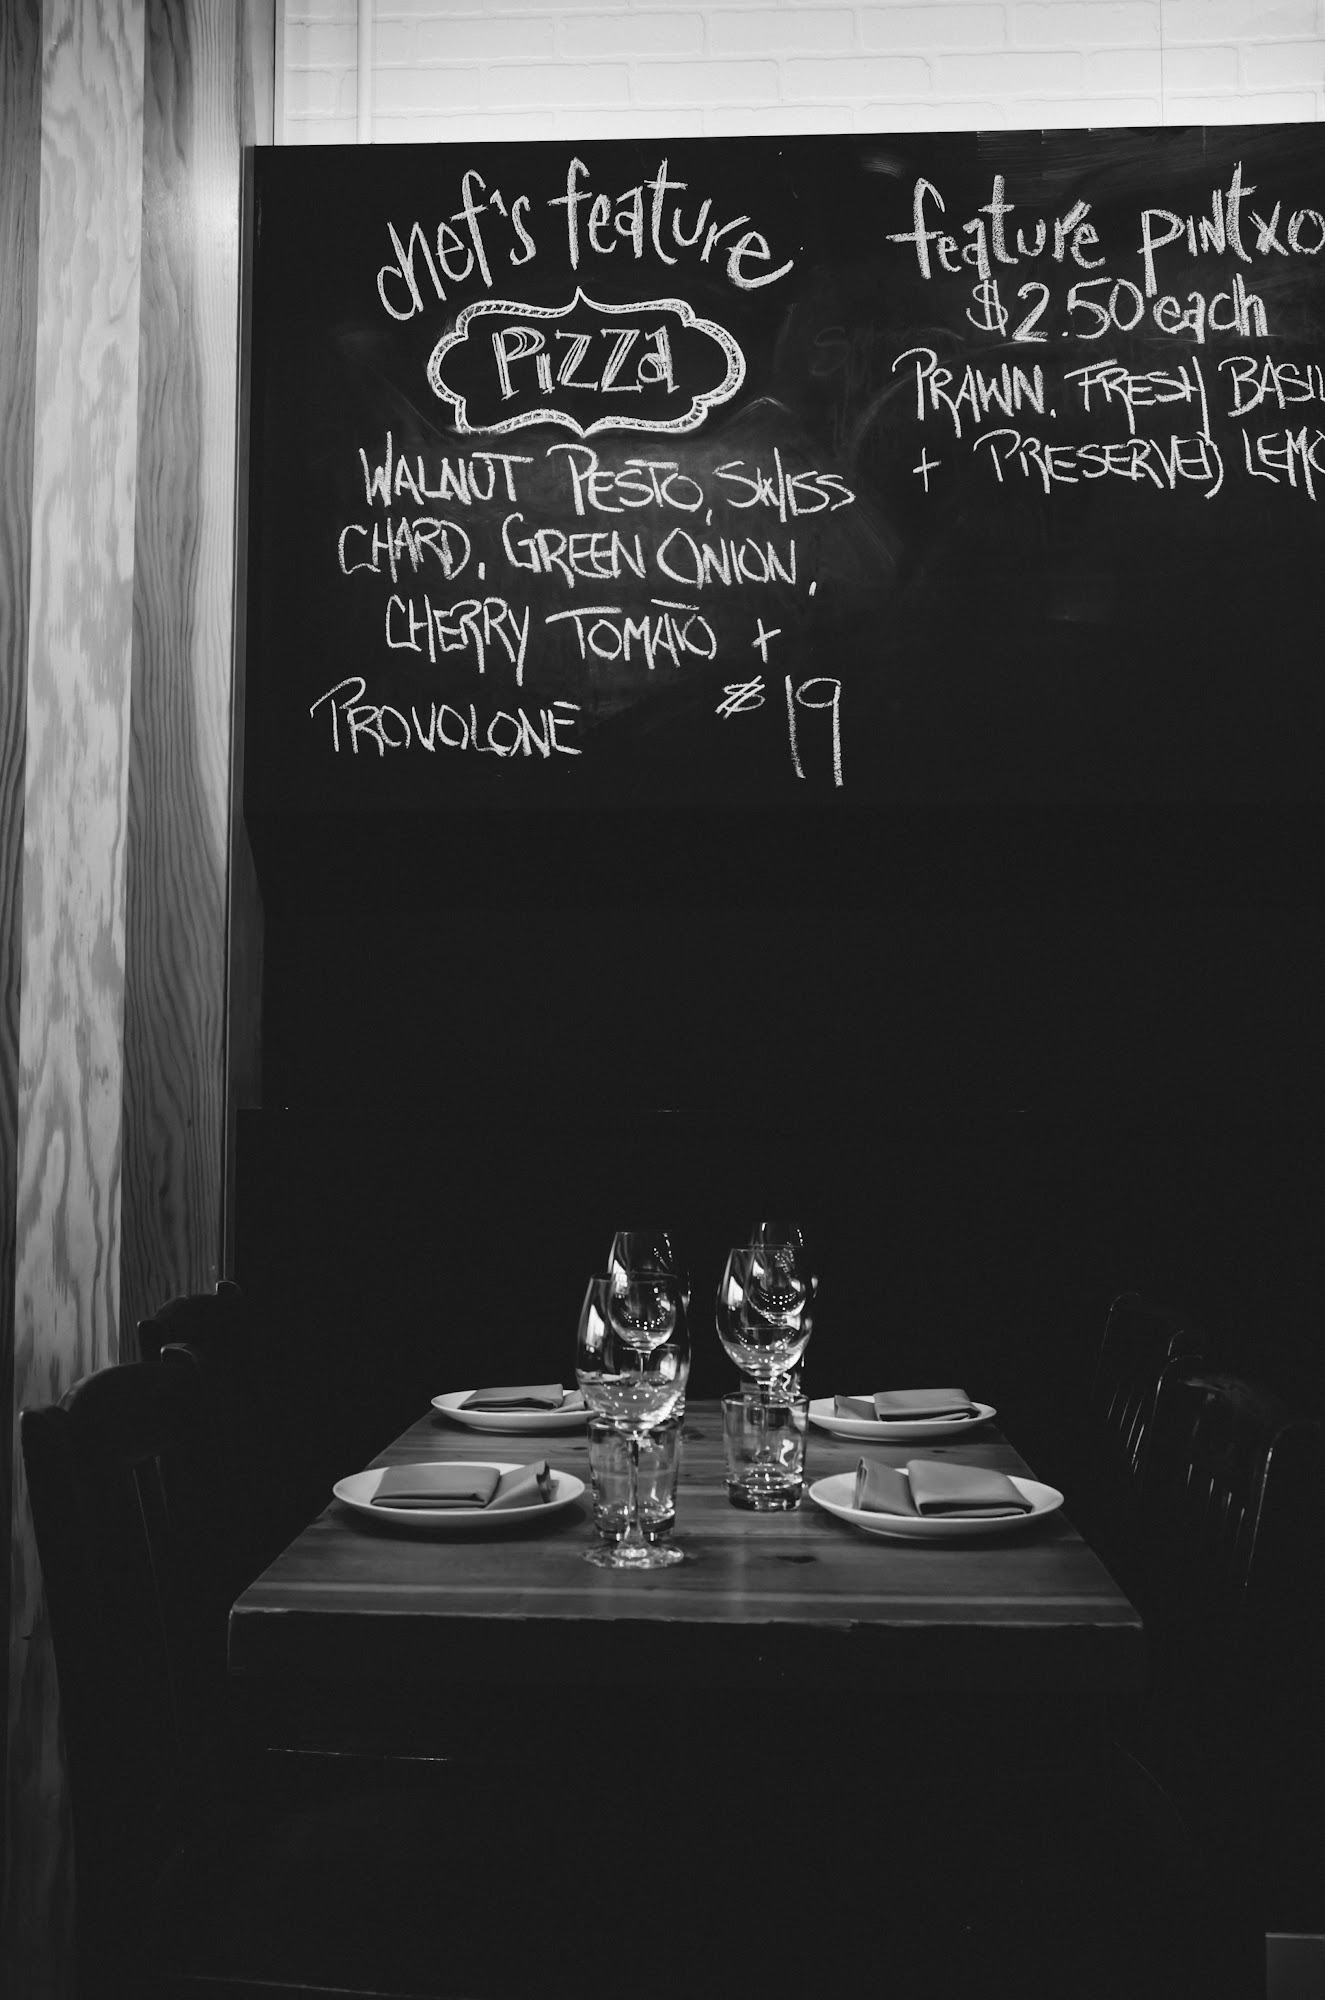 chef's feature
Pizza
WALNUT PESTO, SWISS
CHARD, GREEN ONION,
CHERRY TOMATO +
PROVOLONE $19
feature pintxo
$2.50 each
PRAWN, FRESH BASIL
+ PRESERVED LEMO